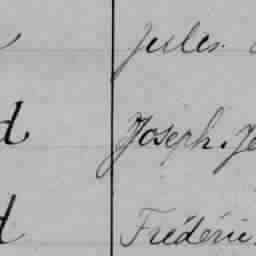 Jules.
d Joseph. Je
d Frédéric